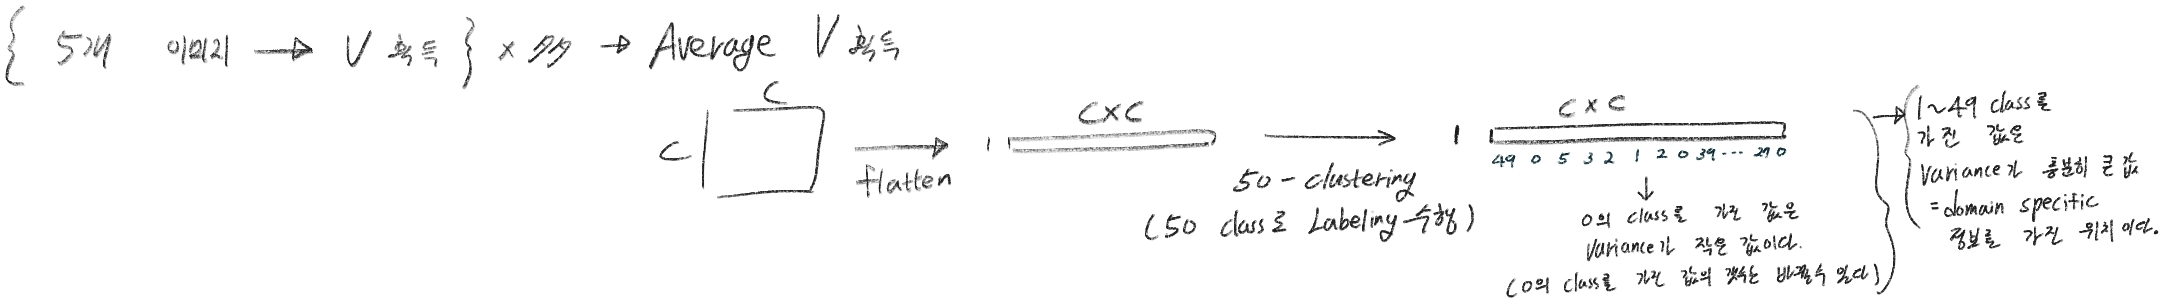 { 5개 이미지 → V 획득 } × 多 → Average V 획득
C
C
flatten
1
C×C
50-clustering
(50 class로 Labeling 수행)
1
C×C
49 0 5 3 2 1 2 0 39 ... 29 0
↓
0의 class를 가진 값은
Variance가 작은 값이다.
(0의 class를 가진 값의 갯수는 바뀔수 있다)
→ 1~49 class를
가진 값은
Variance가 충분히 큰 값
= domain specific
정보를 가진 위치 이다.